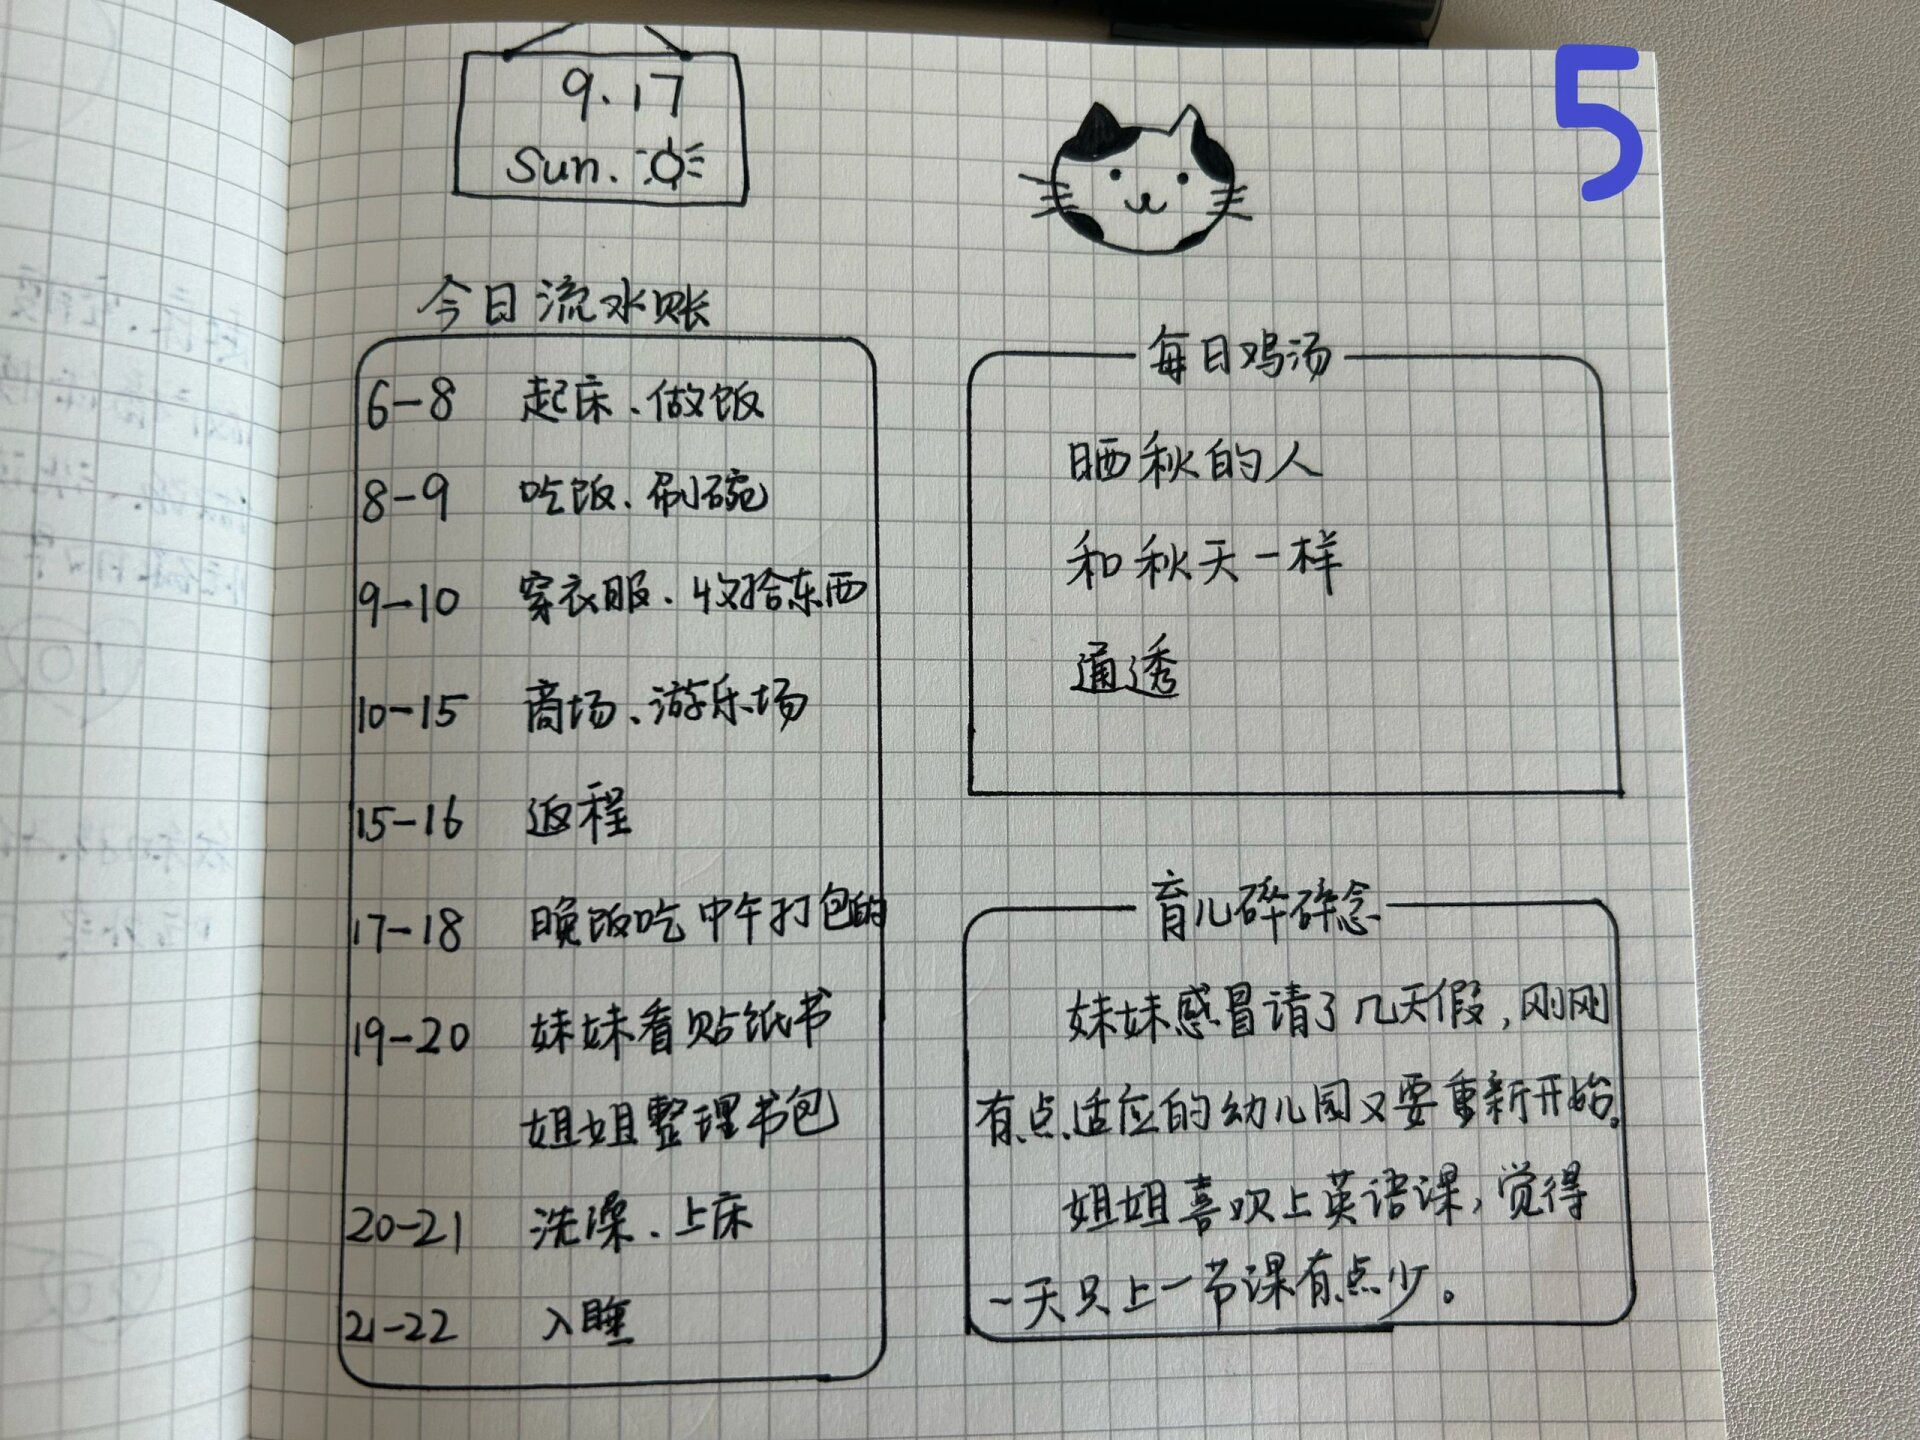 9.17
Sun.
5
今日流水账
6-8 起床、做饭
8-9 吃饭、刷碗
9-10 穿衣服、收拾东西
10-15 商场、游乐场
15-16 返程
17-18 晚饭吃中午打包的
19-20 妹妹看贴纸书
姐姐整理书包
20-21 洗澡、上床
21-22 入睡
每日鸡汤
晒秋的人
和秋天一样
通透
育儿碎碎念
妹妹感冒请了几天假,刚刚
有点适应的幼儿园又要重新开始。
姐姐喜欢上英语课,觉得
一天只上一节课有点少。